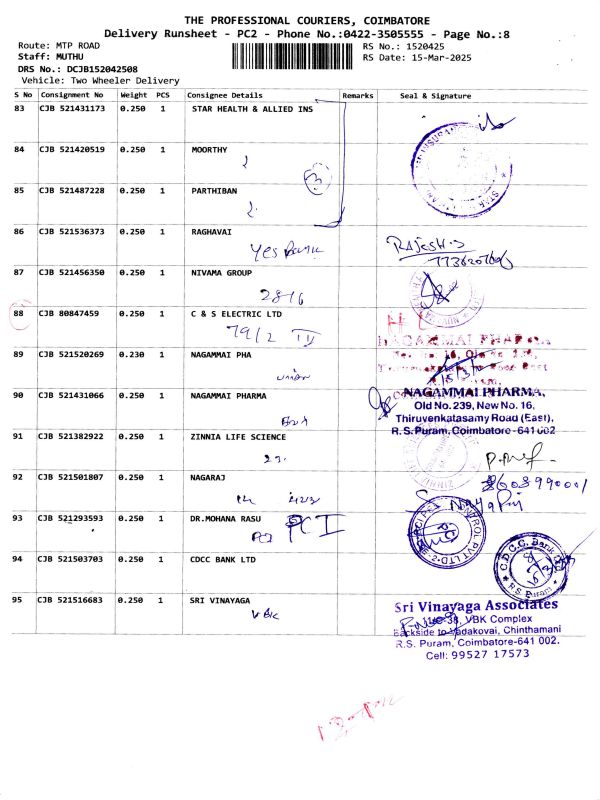 THE PROFESSIONAL COURIERS, COIMBATORE
Delivery Runsheet - PC2 - Phone No.:0422-3505555 - Page No.:8
Route: MTP ROAD
RS No.: 1520425
Staff: MUTHU
RS Date: 15-Mar-2025
DRS No.: DCJB152042508
Vehicle: Two Wheeler Delivery
S No Consignment No Weight PCS Consignee Details Remarks Seal & Signature
83 CJB 521431173 0.250 1 STAR HEALTH & ALLIED INS
84 CJB 521420519 0.250 1 MOORTHY
85 CJB 521487228 0.250 1 PARTHIBAN
86 CJB 521536373 0.250 1 RAGHAVAI
Yes Bank
Rajesh.S
87 CJB 521456350 0.250 1 NIVAMA GROUP
2816
88 CJB 80847459 0.250 1 C & S ELECTRIC LTD
79/2 IV
89 CJB 521520269 0.230 1 NAGAMMAI PHA
NAGAMMAI PHARMA
90 CJB 521431066 0.250 1 NAGAMMAI PHARMA
NAGAMMAI PHARMA,
Old No. 239, New No. 16,
Thiruvenkatasamy Road (East),
R.S. Puram, Coimbatore-641 002
91 CJB 521382922 0.250 1 ZINNIA LIFE SCIENCE
92 CJB 521501807 0.250 1 NAGARAJ
93 CJB 521293593 0.250 1 DR.MOHANA RASU
PCI
94 CJB 521503703 0.250 1 CDCC BANK LTD
C.D.C.C. Bank
R.S. Puram
95 CJB 521516683 0.250 1 SRI VINAYAGA
VBK
Sri Vinayaga Associates
38, VBK Complex
Backside to Vadakovai, Chinthamani
R.S. Puram, Coimbatore-641 002.
Cell: 99527 17573